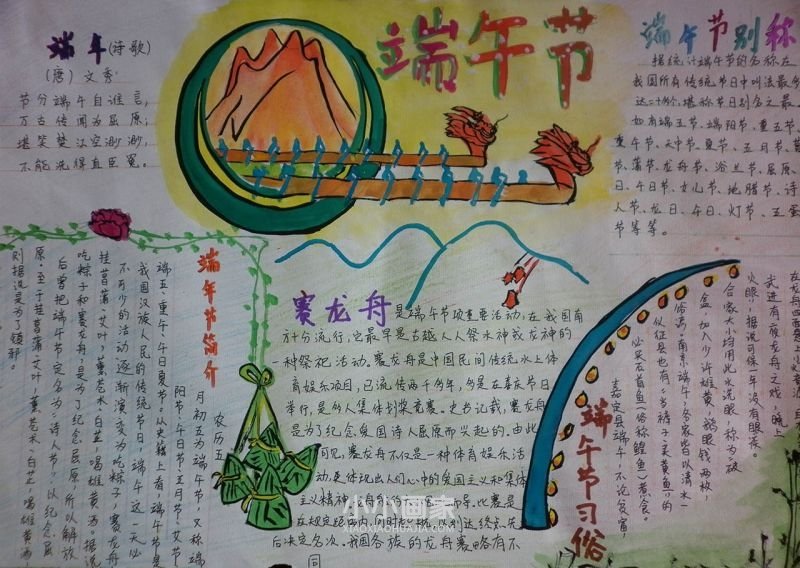 端午节
端午(诗歌)
(唐) 文秀
节分端午自谁言,
万古传闻为屈原;
堪笑楚江空渺渺,
不能洗得直臣冤。
端午节别称
据统计端午节的名称在
我国所有传统节日中叫法最多
达二十多个,堪称节日别名之最
如有端五节、端阳节、重五节、
重午节、天中节、夏节、五月节、
节、蒲节、龙舟节、浴兰节、屈原
日、午日节、女儿节、地腊节、诗
人节、龙日、午日、灯节、五蛋
节等等。
端午节简介
农历五
月初五为端午节,又称端
阳节、午日节、五月节、艾节
端五、重午、午日、夏节。
我国汉族人民的传统节日,端午这一天必
不可少的活动逐渐演变为吃粽子,赛龙舟
挂菖蒲、艾叶,薰苍术、白芷,喝雄黄酒。据说
吃粽子和赛龙舟,是为了纪念屈原,所以解放
后曾把端午节定名为“诗人节”,以纪念屈
原。至于挂菖蒲、艾叶,薰苍术、白芷,喝雄黄酒
则据说是为了辟邪。
赛龙舟是端午节项重要活动,在我国南
方十分流行,它最早是古越人人祭水神或龙神的
一种祭祀活动。赛龙舟是中国民间传统水上体
育娱乐项目,已流传两千多年,多是在喜庆节日
举行,是多人集体划桨竞赛。史书记载,赛龙舟
是为了纪念爱国诗人屈原而兴起的。由此
可见,赛龙舟不仅是一种体育娱乐活
动,更体现出人们心中的爱国主义和集体
主义精神。
后决定名次。我国各族的龙舟赛略有不
同
端午节习俗
武进有夜龙舟之戏,晚上
火眼,据说可保一年没有眼疾。
合家大小均用此水洗眼,称为破
盆,加入少许雄黄,鹅眼钱两枚,
俗病。南京端午,各家皆以清水一
仪征县也有“当裤子买黄鱼”的
必买石首鱼(俗称鳇鱼)煮食。
嘉定县端午,不论贫富,
小小画家
XIAOXIAOHUAJIA.COM